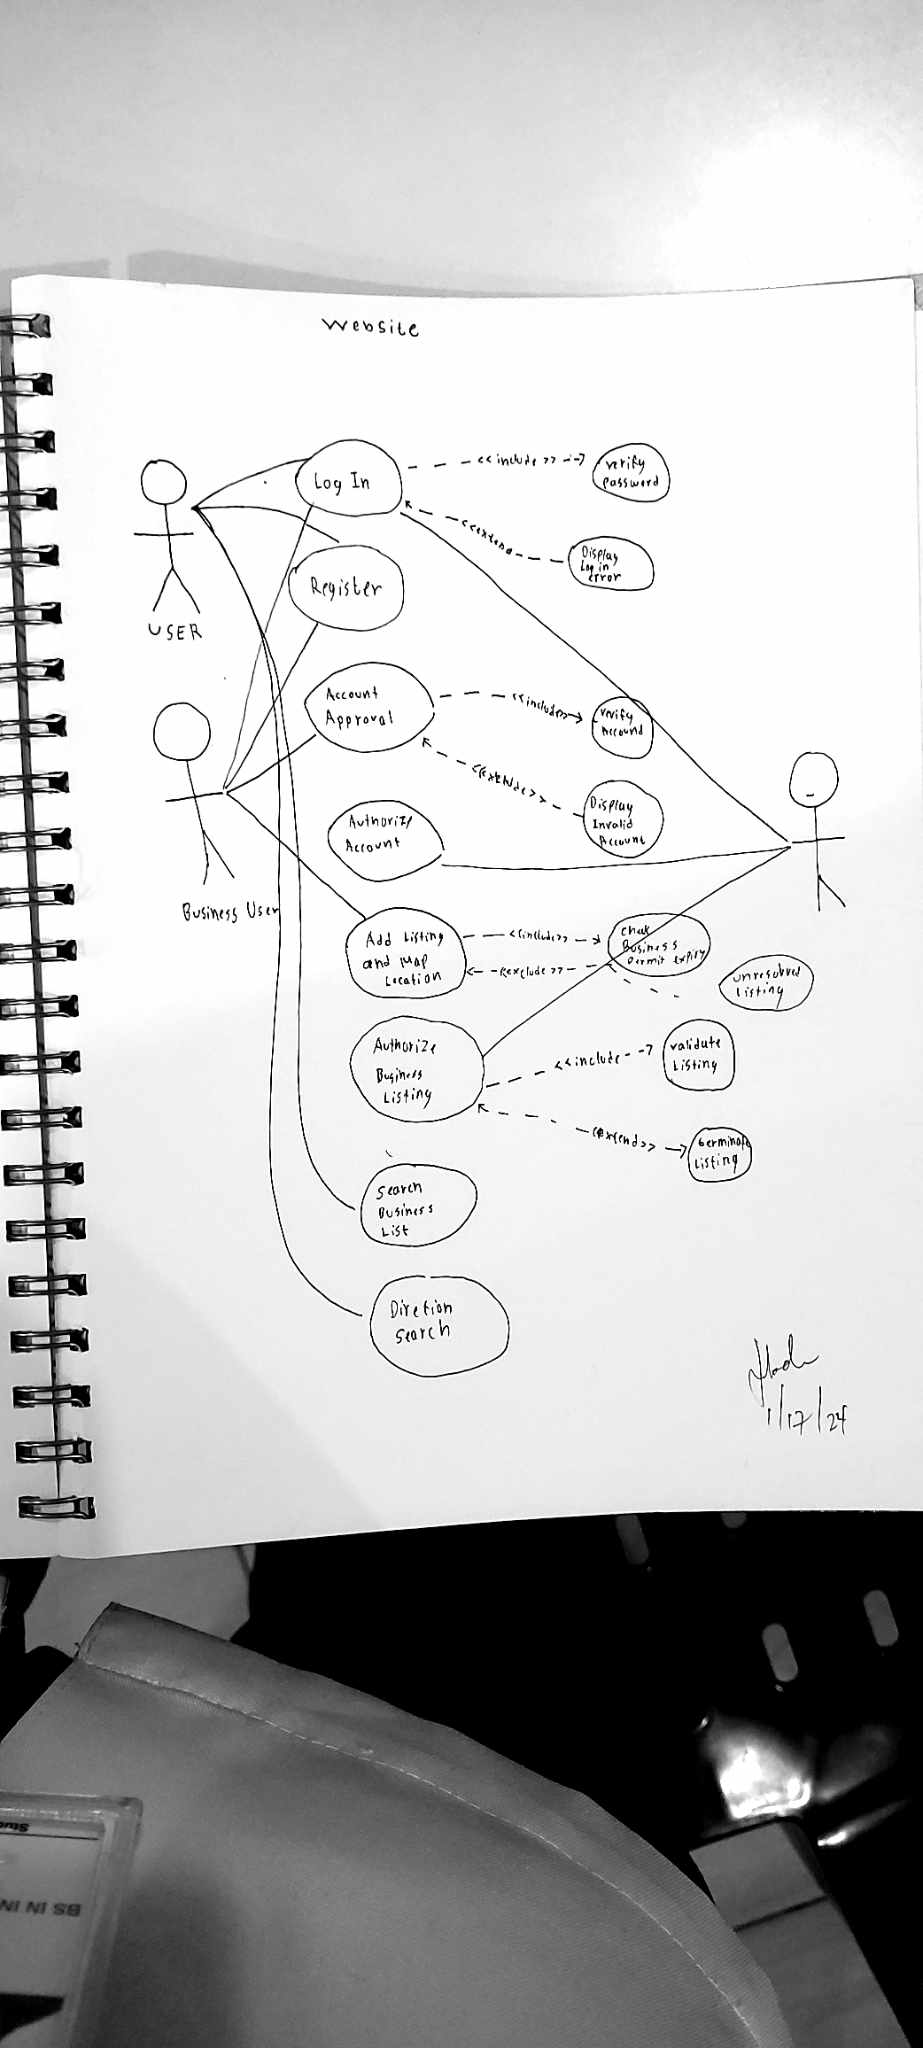 Website
Log In
<<include>>
verify
password
Display
Log in
error
Register
USER
Account
Approval
<<include>>
verify
Account
Display
Invalid
Account
Authorize
Account
Business User
Add Listing
and Map
Location
<<include>>
Business
Permit expiry
Listing
Authorize
Business
Listing
<<include
validate
Listing
Listing
Search
Business
List
Diretion
Search
1/17/24